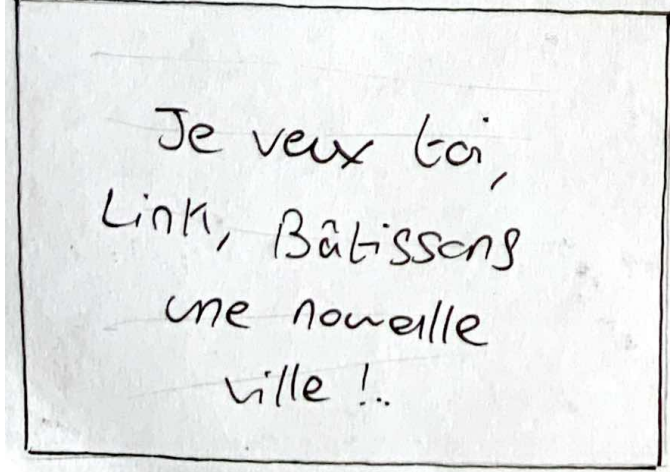 Je veux toi,
Link, Bâtissons
une nouvelle
ville !..